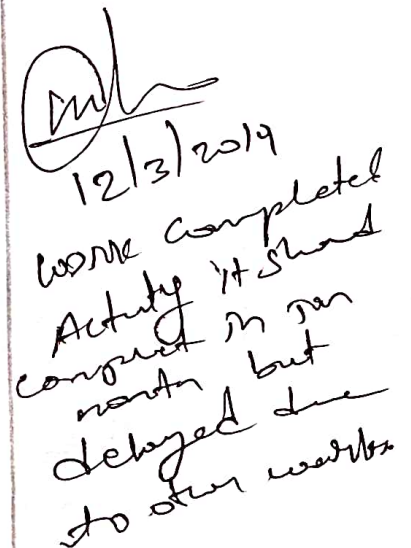 12/3/2019
work completed
Actuty it should
complet in Jan
month but
delayed due
to other works